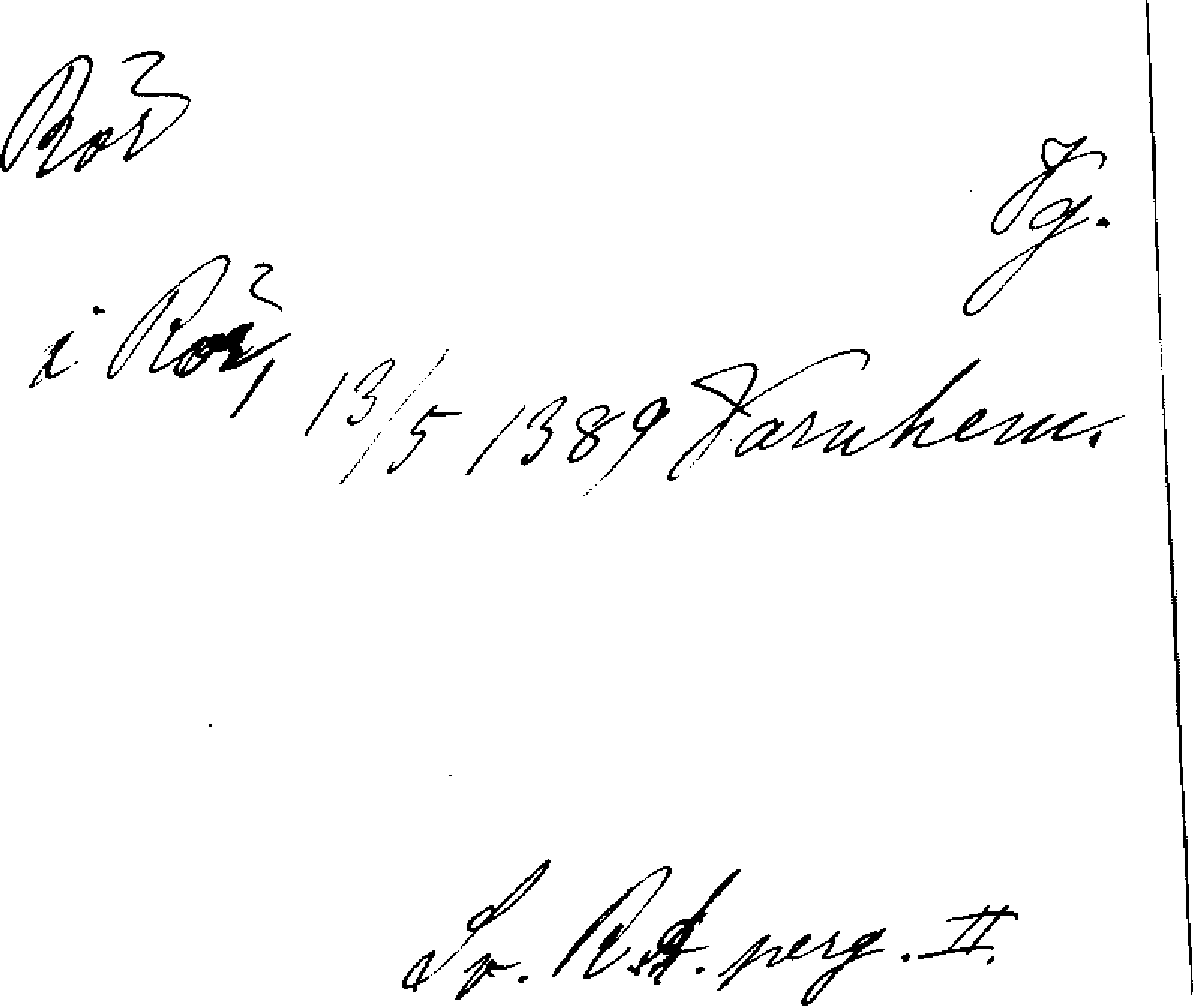 Ror
Vg.
i Ror, 13/5 1389 Varnhem.
Sv. R.A. perg. II.